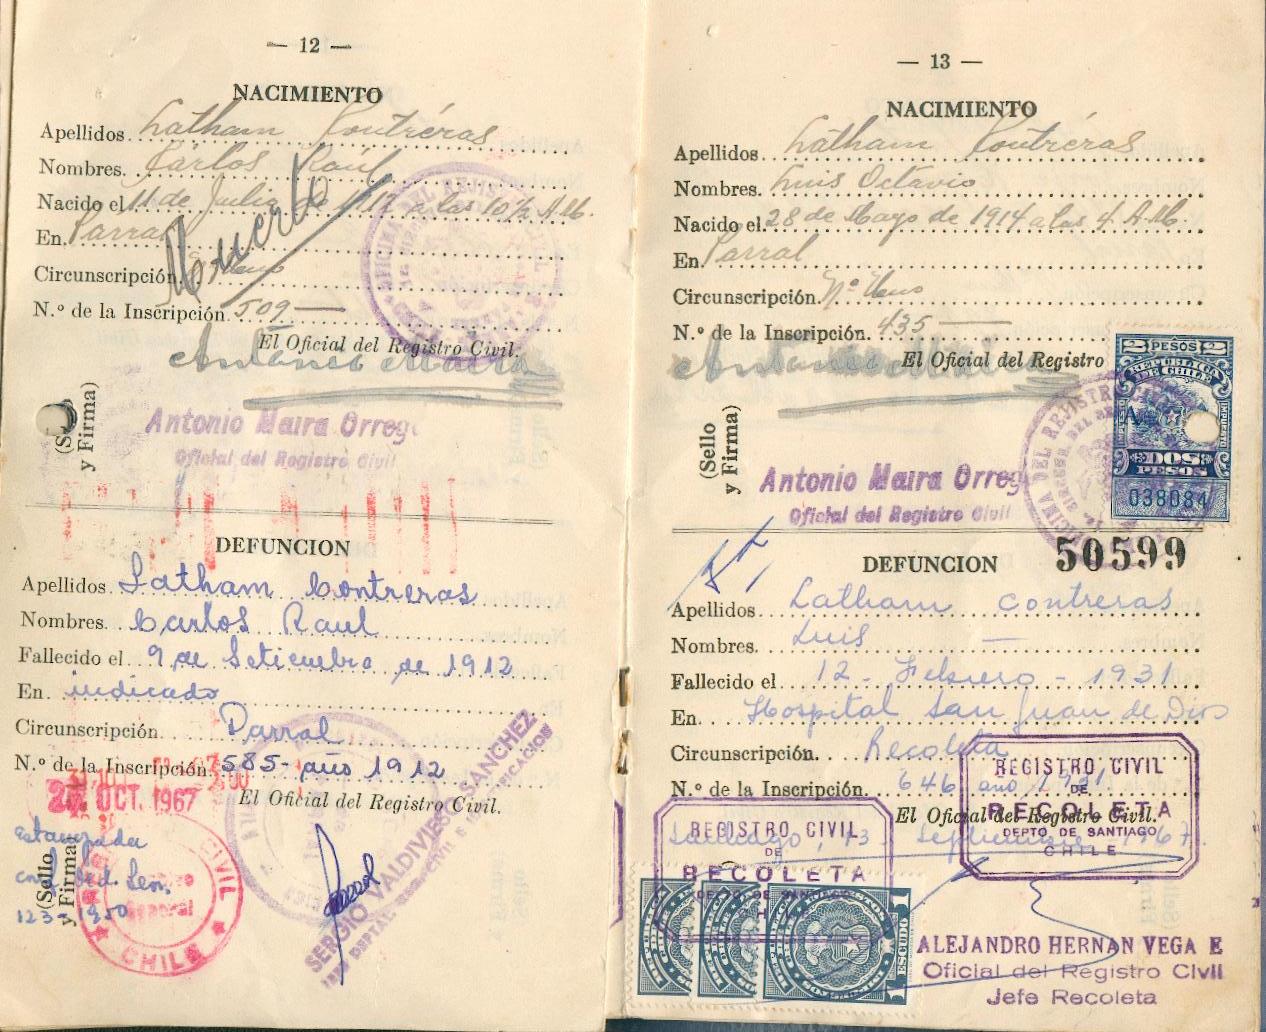 — 12 —
NACIMIENTO
Apellidos Latham Contréras
Nombres Carlos Raúl
Nacido el 11 de Julio de 1912 a las 10½ A.M.
En Parral
Muerto
Circunscripción
N.º de la Inscripción 509 —
El Oficial del Registro Civil.
Antonio Maira
(Sello y Firma)
Antonio Maira Orrego
Oficial del Registro Civil
DEFUNCION
Apellidos Latham Contreras
Nombres Carlos Raul
Fallecido el 9 de Setiembre de 1912
En indicado
Circunscripción Parral
N.º de la Inscripción 585 - año 1912
El Oficial del Registro Civil.
OCT. 1967
estampada
123 - 1950
(Sello y Firma)
CIVIL
CHILE
SERGIO VALDIVIESO SANCHEZ
— 13 —
NACIMIENTO
Apellidos Latham Contréras
Nombres Luis Octavio
Nacido el 28 de Mayo de 1914 a las 4 A.M.
En Parral
Circunscripción Nº Uno
N.º de la Inscripción 435 —
El Oficial del Registro
Antonio Maira
2 PESOS 2
REPUBLICA DE CHILE
IMPUESTO
DOS PESOS
038084
(Sello y Firma)
Antonio Maira Orreg
Oficial del Registro Civil
DEFUNCION
50599
Apellidos Latham Contreras
Nombres Luis —
Fallecido el 12 - Febrero - 1931
En Hospital San Juan de Dios
Circunscripción Recoleta
N.º de la Inscripción 646 año 1931
El Oficial del Registro Civil.
Santiago, 13 Septiembre 1967
REGISTRO CIVIL
DE
RECOLETA
DEPTO DE SANTIAGO
CHILE
REGISTRO CIVIL
DE
RECOLETA
ESCUDO 1
ALEJANDRO HERNAN VEGA E
Oficial del Registro Civil
Jefe Recoleta